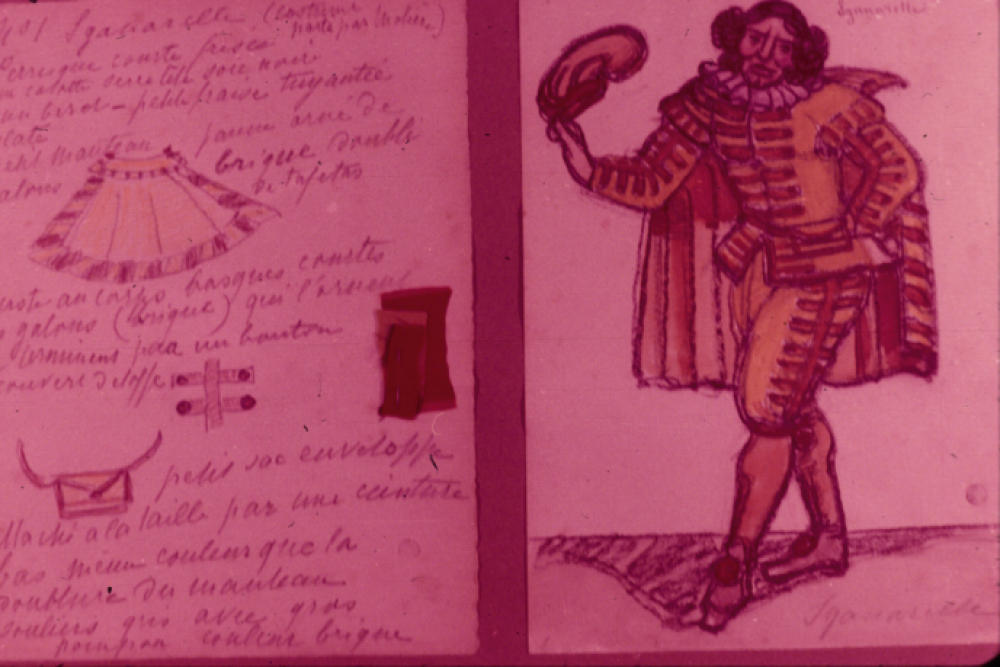 Sganarelle (costume
porté par Molière)
Perruque courte frisée
calotte serre tête soie noire
petite fraise tuyautée
plate
petit manteau jaune orné de
galons brique doublé
de tafetas
veste au corps basques courtes
galons (brique) qui l'ornent
terminent par un bouton
couvert d'étoffe
petit sac enveloppe
attaché a la taille par une ceinture
bas meme couleur que la
doublure du manteau
souliers gris avec gros
pompon couleur brique
Sganarelle
Sganarelle